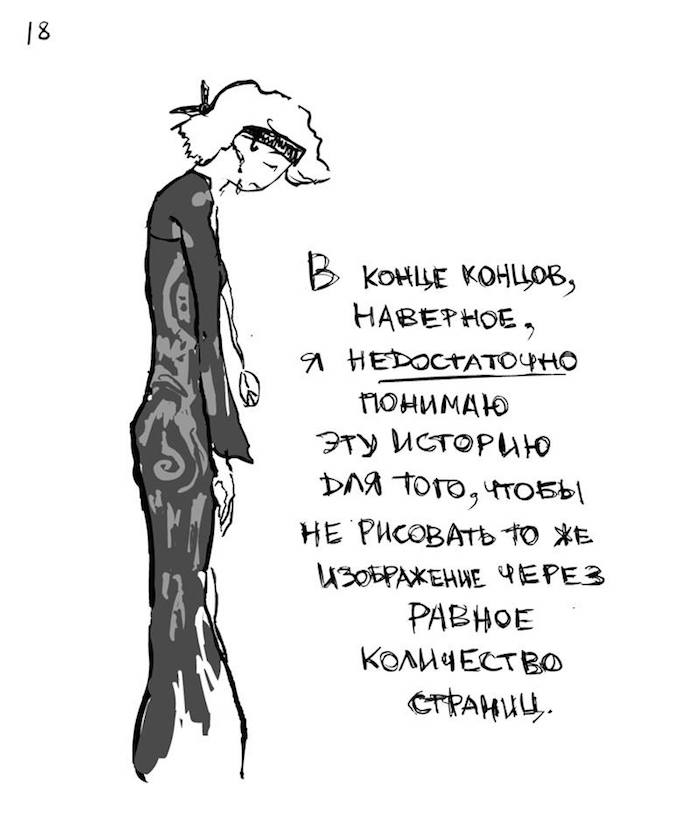 18
В КОНЦЕ КОНЦОВ,
НАВЕРНОЕ,
Я НЕДОСТАТОЧНО
ПОНИМАЮ
ЭТУ ИСТОРИЮ
ДЛЯ ТОГО, ЧТОБЫ
НЕ РИСОВАТЬ ТО ЖЕ
ИЗОБРАЖЕНИЕ ЧЕРЕЗ
РАВНОЕ
КОЛИЧЕСТВО
СТРАНИЦ.